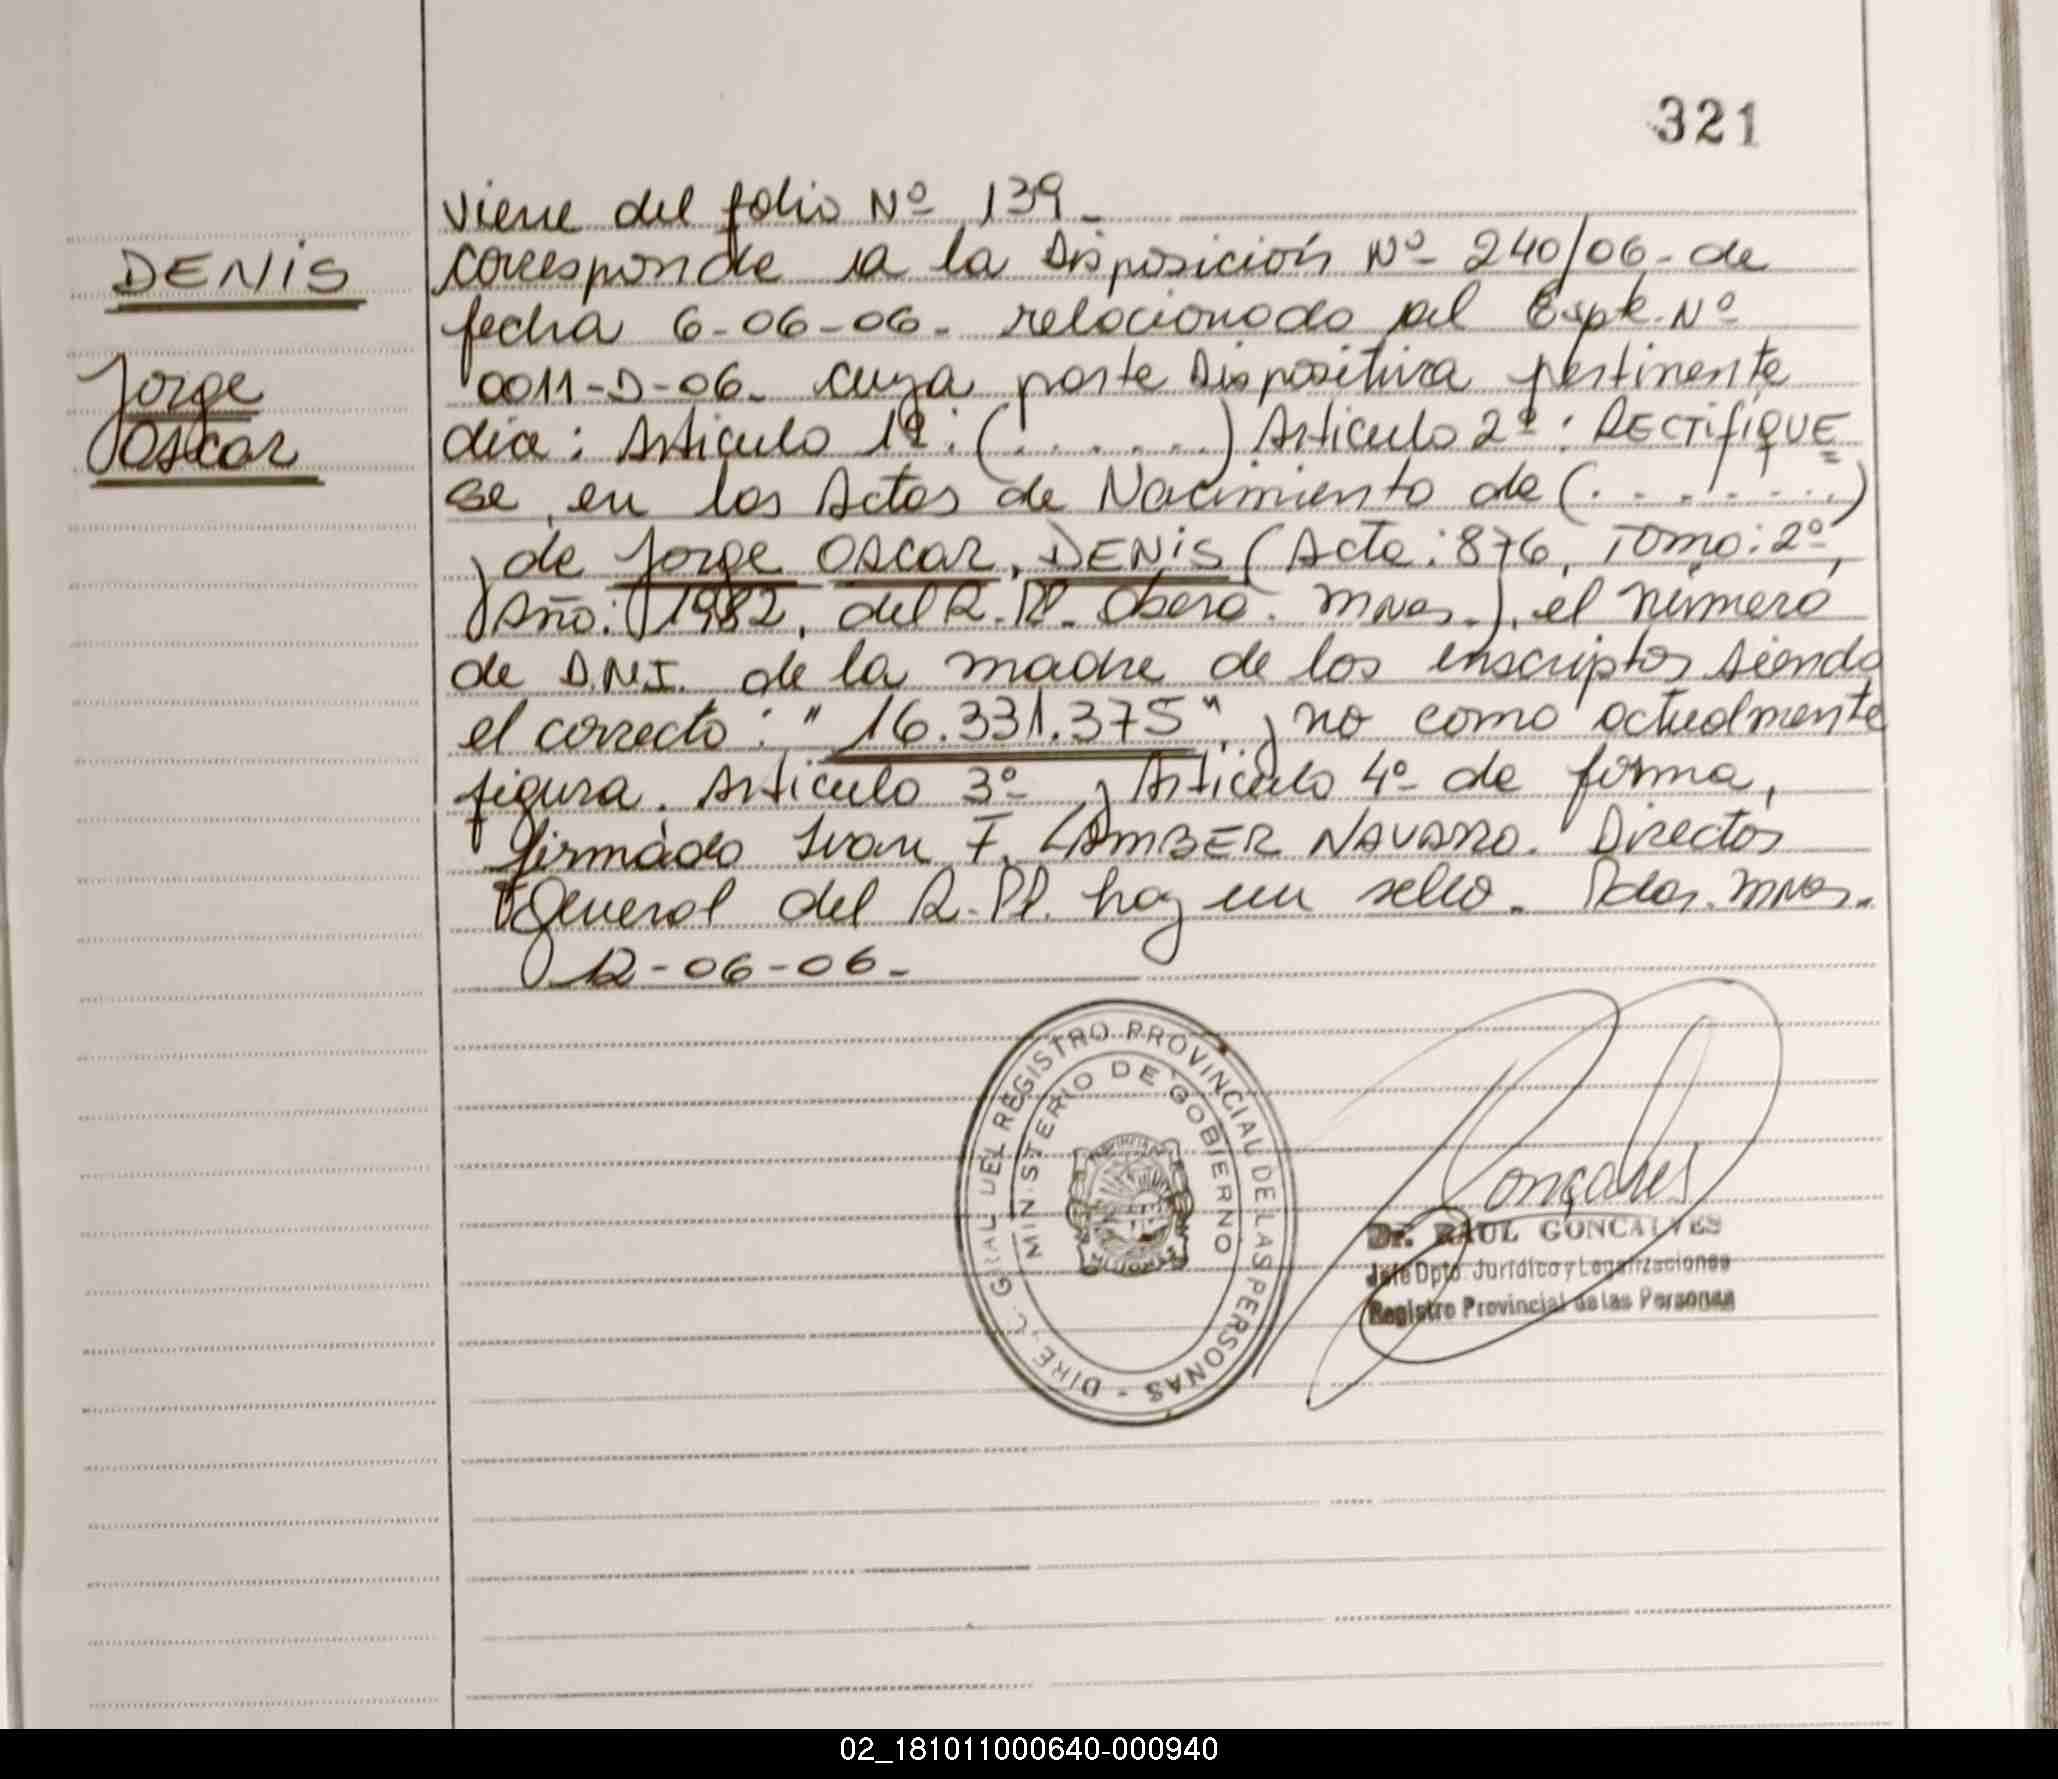 321
viene del folio Nº 139_
DENIS
corresponde a la Disposición Nº 240/06_ de
fecha 6-06-06_ relacionado al Expte. Nº
Jorge
0011-D-06_ cuya parte Dispositiva pertinente
Oscar
dice: Articulo 1º: (.......) Articulo 2º: RECTIFIQUE
se, en las Actas de Nacimiento de (........)
y de Jorge Oscar, DENIS (Acta: 876, Tomo: 2º,
Año: 1982, del R.P. Oberá. Mnes.), el número
de D.N.I. de la madre de los inscriptos siendo
el correcto: "16.331.375", y no como actualmente
figura. Articulo 3º y Articulo 4º de forma,
firmado Ivan F. LAMBER NAVARRO. Director
General del R.P. hay un sello. Pdas. Mnes.
12-06-06_
DIREC. GRAL DEL REGISTRO PROVINCIAL DE LAS PERSONAS -
MINISTERIO DE GOBIERNO
MISIONES
Goncalves
Dr. RAUL GONCALVES
Jefe Dpto. Jurídico y Legalizaciones
Registro Provincial de las Personas
02_181011000640-000940